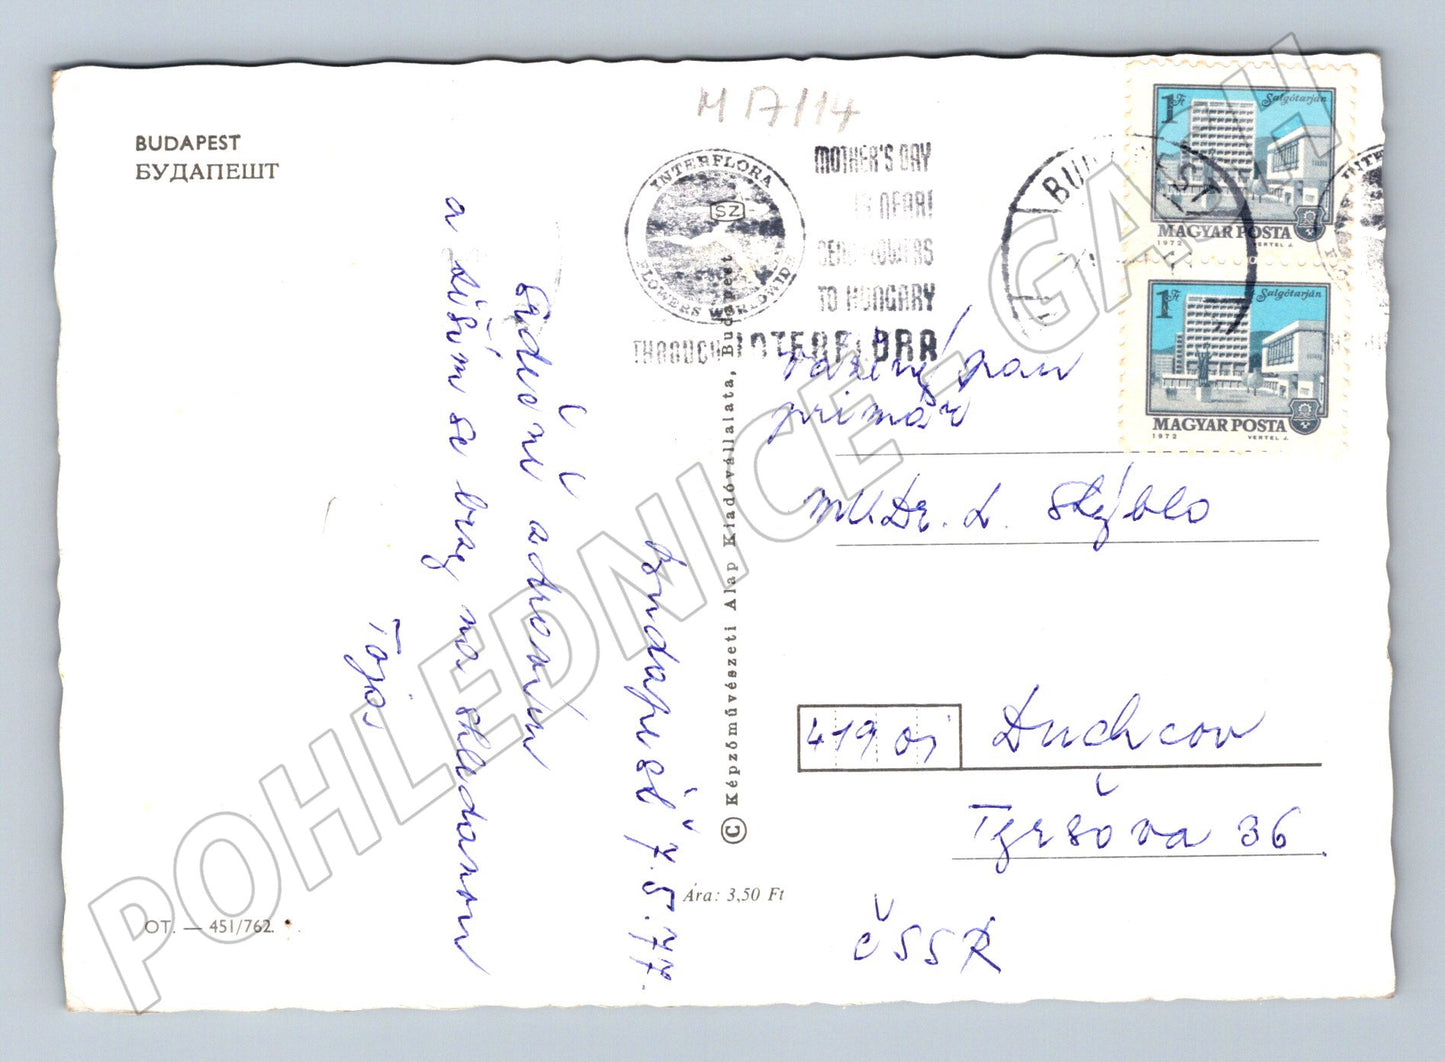 M 17/14
BUDAPEST
БУДАПЕШТ
INTERFLORA
SZ
FLOWERS WORLDWIDE
MOTHER'S DAY
IS NEAR!
SEND FLOWERS
TO HUNGARY
THROUGH INTERFLORA
BUDAPEST
1 Ft Salgótarján
MAGYAR POSTA
1972 VERTEL J.
1 Ft Salgótarján
MAGYAR POSTA
1972 VERTEL J.
Budapešť 7.5.77.
Srdečně zdravím
a těším se brzy na shledanou
Vážený pan
primář
MUDr. L. Stýblo
419 01 Duchcov
Tyršova 36
ČSSR
© Képzőművészeti Alap Kiadóvállalata, Budapest
Ára: 3,50 Ft
OT. — 451/762.
POHLEDNICE - GASH